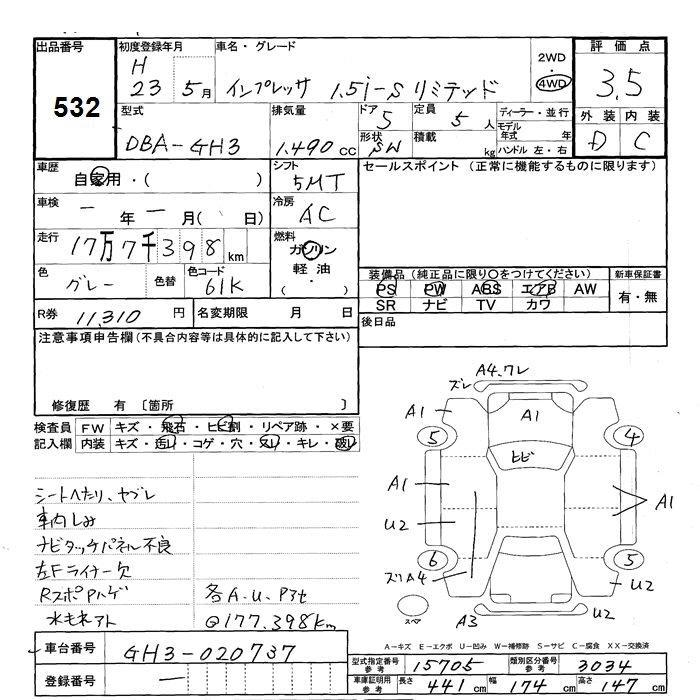 出品番号
532
初度登録年月
H
23 5月
車名・グレード
インプレッサ 1.5i-S リミテッド
2WD
4WD
評価点
3.5
外装 内装
D C
型式
DBA-GH3
排気量
1.490 cc
ドア
5
形状
SW
定員
5 人
積載
kg
ディーラー・並行
モデル年式 年
ハンドル 左・右
車歴
自家用・( )
シフト
5MT
セールスポイント (正常に機能するものに限ります)
車検
一 年 一 月( 日)
冷房
AC
走行
17万7千398km
燃料
ガソリン
軽油
( ・ )
色
グレー
色替
色コード
61K
装備品 (純正品に限り○をつけてください)
PS PW ABS エアB AW
SR ナビ TV カワ
新車保証書
有・無
R券
11,310 円
名変期限 月 日
後日品
注意事項申告欄 (不具合内容等は具体的に記入して下さい)
修復歴 有 〔箇所 〕
検査員
記入欄
FW キズ・飛石・ヒビ割・リペア跡・×要
内装 キズ・汚い・コゲ・穴・スレ・キレ・破れ
シートへたり、ヤブレ
車内しみ
ナビタッチパネル不良
左Fライナー欠
RスポPハゲ
各A.U.Pヨゴレ
水もれアト
@177.398km
A4.ワレ
ズレ
A1
A1
5
4
ヒビ
A1
A1
U2
6
5
ズリA4
U2
スペア
A3
U2
車台番号
GH3-020737
登録番号
一
A-キズ E-エクボ U-凹み W-補修跡 S-サビ C-腐食 XX-交換済
型式指定番号 参考
15705
類別区分番号 参考
3034
車庫証明用 参考
長さ 441 cm
幅 174 cm
高さ 147 cm